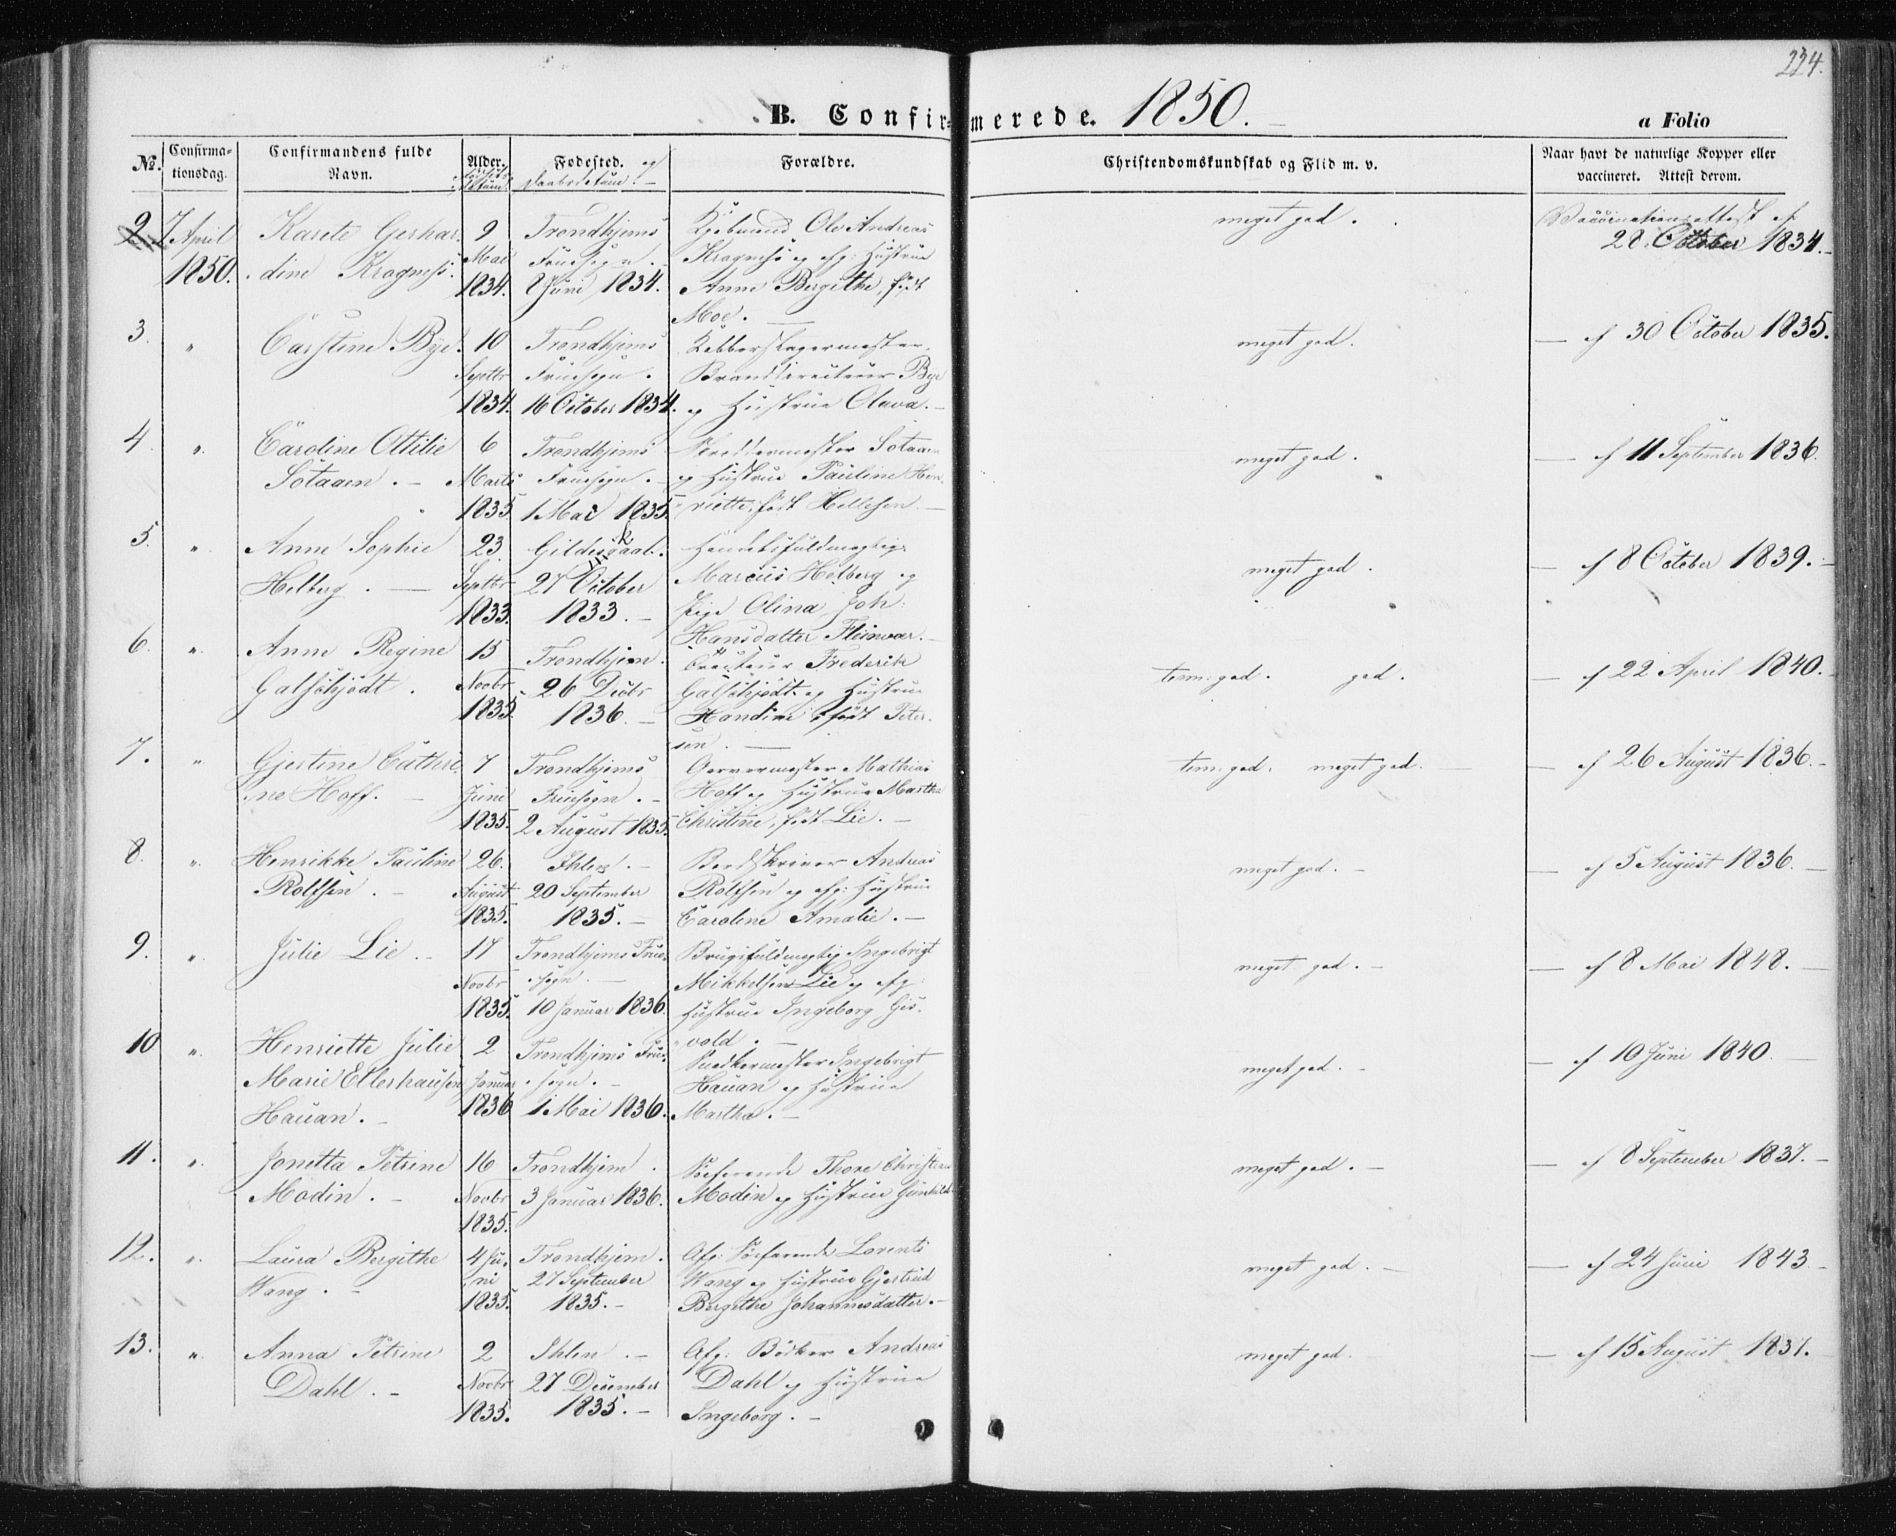 234.
B. Confirmerede. 1850.
a Folio
No.
Confirmationsdag.
Confirmandens fulde Navn.
Alder.
Fødested. og Daabsdatum.
Forældre.
Christendomskundskab og Flid m. v.
Naar havt de naturlige Kopper eller
vaccineret. Attest derom.
2. 7 April 1850.
Karete Gerhar-
dine Kragness.
9 Mai 1834.
Trondhjems Fruesogn.
8 Juni 1834.
Ole Andreas
Kragness og afg: Hustrue
Anne Bergithe, født
Moe.
meget god.
Vaccinationsattest af
28 October 1834.
3. "
Carstine Bye.
10 Septbr 1834.
Trondhjems Fruesogn.
16 October 1834.
Kobberslagermester,
Branddirecteur Bye
og Hustrue Olava.
meget god.
— af 30 October 1835.
4. "
Caroline Ottilie
Sotaaen.
6 Marts 1835
Trondhjems Fruesogn.
1 Mai 1835.
Skreddermester Sotaaen
og Hustrue Pauline Hen-
riette, født Hellesen.
meget god.
— af 11 September 1836.
5. "
Anne Sophie
Holberg.
23 Septbr 1833.
Gildeskaal.
27 October
1833.
Handelsfuldmægtig
Marcus Holberg og
Pige Olina Joh:
Hansdatter Fleinvær.
meget god.
— af 8 October 1839.
6. "
Anne Regine
Galschjødt.
15 Novbr 1835.
Trondhjem.
26 Decbr
1836.
Frederik
Galschjødt og Hustrue
Handine født Peter-
sen.
tem: god. god.
— af 22 April 1840.
7. "
Gjertine Cathri-
ne Hoff.
7 Juni 1835.
Trondhjems Fruesogn.
2 August 1835.
Garvermester Mathias
Hoff og Hustrue Martha
Christine, født Lie.
tem: god. meget god.
— af 26 August 1836.
8. "
Henrikke Pauline
Rolfsen.
26 August 1835.
Ihlen.
20 September
1835.
Andreas
Rolfsen og afg: Hustrue
Caroline Amalie.
meget god.
— af 5 August 1836.
9. "
Julie Lie.
17 Novbr 1835.
Trondhjems Frue-
sogn.
10 Januar 1836.
Brugsfuldmægtig Ingebrigt
Mikkelsen Lie og afg:
Hustrue Ingeborg Gis-
vold.
meget god.
— af 8 Mai 1848.
10 "
Henriette Julie
Marie Ellershausen
Hauan.
2 Januar 1836
Trondhjems Frue-
sogn.
1 Mai 1836.
Snedkermester Ingebrigt
Hauan og Hustrue
Martha.
meget god.
— af 10 Juni 1840.
11. "
Jonetta Petrine
Modin.
16 Novbr 1835.
Trondhjem.
3 Januar 1836.
Søefarende Thore Christian
Modin og Hustrue Gunhild.
meget god.
— af 8 September 1837.
12. "
Laura Bergithe
Wang.
4 Juni 1835.
Trondhjem.
27 September
1835.
Afg: Søefarende Lorents
Wang og Hustrue Gjertrud
Bergithe Johannesdatter.
meget god.
— af 24 Juni 1843
13. "
Anna Petrine
Dahl.
2 Novbr 1835.
Ihlen.
27 December
1835.
Afg: Bødker Andreas
Dahl og Hustrue
Ingeborg.
meget god.
— af 15 August 1837.